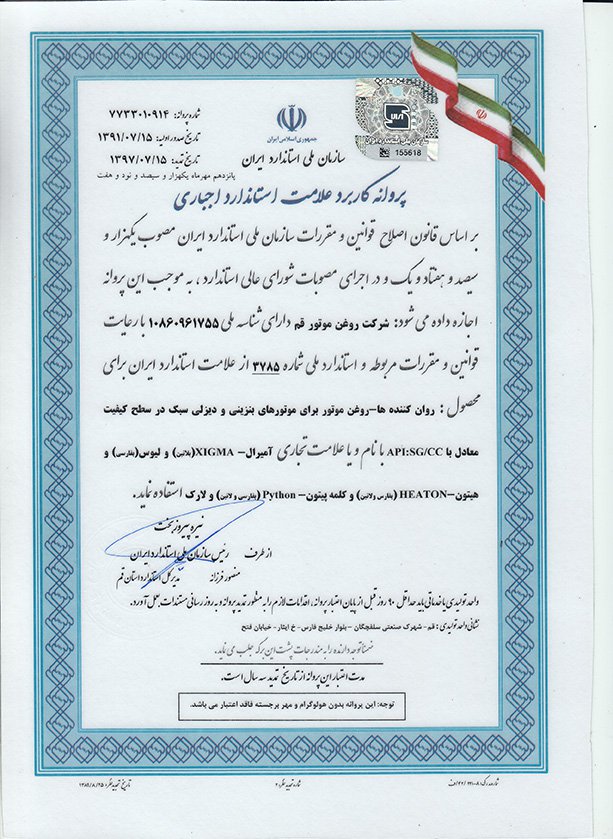 شماره پروانه: ۷۷۳۳۰۱۰۹۱۴
تاریخ صدور اولیه: ۱۳۹۱/۰۷/۱۵
تاریخ تمدید: ۱۳۹۷/۰۷/۱۵
پانزدهم مهرماه یکهزار و سیصد و نود و هفت
جمهوری اسلامی ایران
سازمان ملی استاندارد ایران
155618
پروانه کاربرد علامت استاندارد اجباری
بر اساس قانون اصلاح قوانین و مقررات سازمان ملی استاندارد ایران مصوب یکهزار و
سیصد و هفتاد و یک و در اجرای مصوبات شورای عالی استاندارد، به موجب این پروانه
اجازه داده می شود: شرکت روغن موتور قم دارای شناسه ملی ۱۰۸۶۰۹۶۱۷۵۵ با رعایت
قوانین و مقررات مربوطه و استاندارد ملی شماره ۳۷۸۵ از علامت استاندارد ایران برای
محصول: روان کننده ها-روغن موتور برای موتورهای بنزینی و دیزلی سبک در سطح کیفیت
معادل با API:SG/CC با نام و یا علامت تجاری آمیرال- XIGMA(بلاتین) و لیوس(بفارسی) و
هیتون-HEATON (بفارسی ولاتین) و کلمه پیتون- Python (بفارسی و لاتین) و لارک استفاده نماید.
نیره پیروزبخت
از طرف رئیس سازمان ملی استاندارد ایران
منصور فرزانه مدیرکل استاندارد استان قم
واحد تولیدی یا خدماتی باید حداقل ۹۰ روز قبل از پایان اعتبار پروانه، اقدامات لازم را به منظور تمدید پروانه و به روز رسانی مستندات، بعمل آورد.
نشانی واحد تولیدی: قم- شهرک صنعتی سلفچگان- بلوار خلیج فارس- خ ایثار- خیابان فتح
ضمنا توجه دارنده را به مندرجات پشت این برگه جلب می نماید.
مدت اعتبار این پروانه از تاریخ تمدید سه سال است.
توجه: این پروانه بدون هولوگرام و مهر برجسته فاقد اعتبار می باشد.